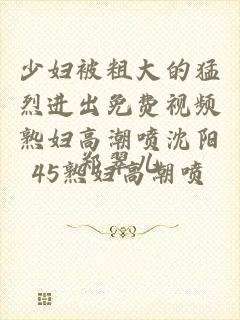 少妇被粗大的猛
烈进出免费视频
熟妇高潮喷沈阳
45熟妇高潮喷
郑翠儿